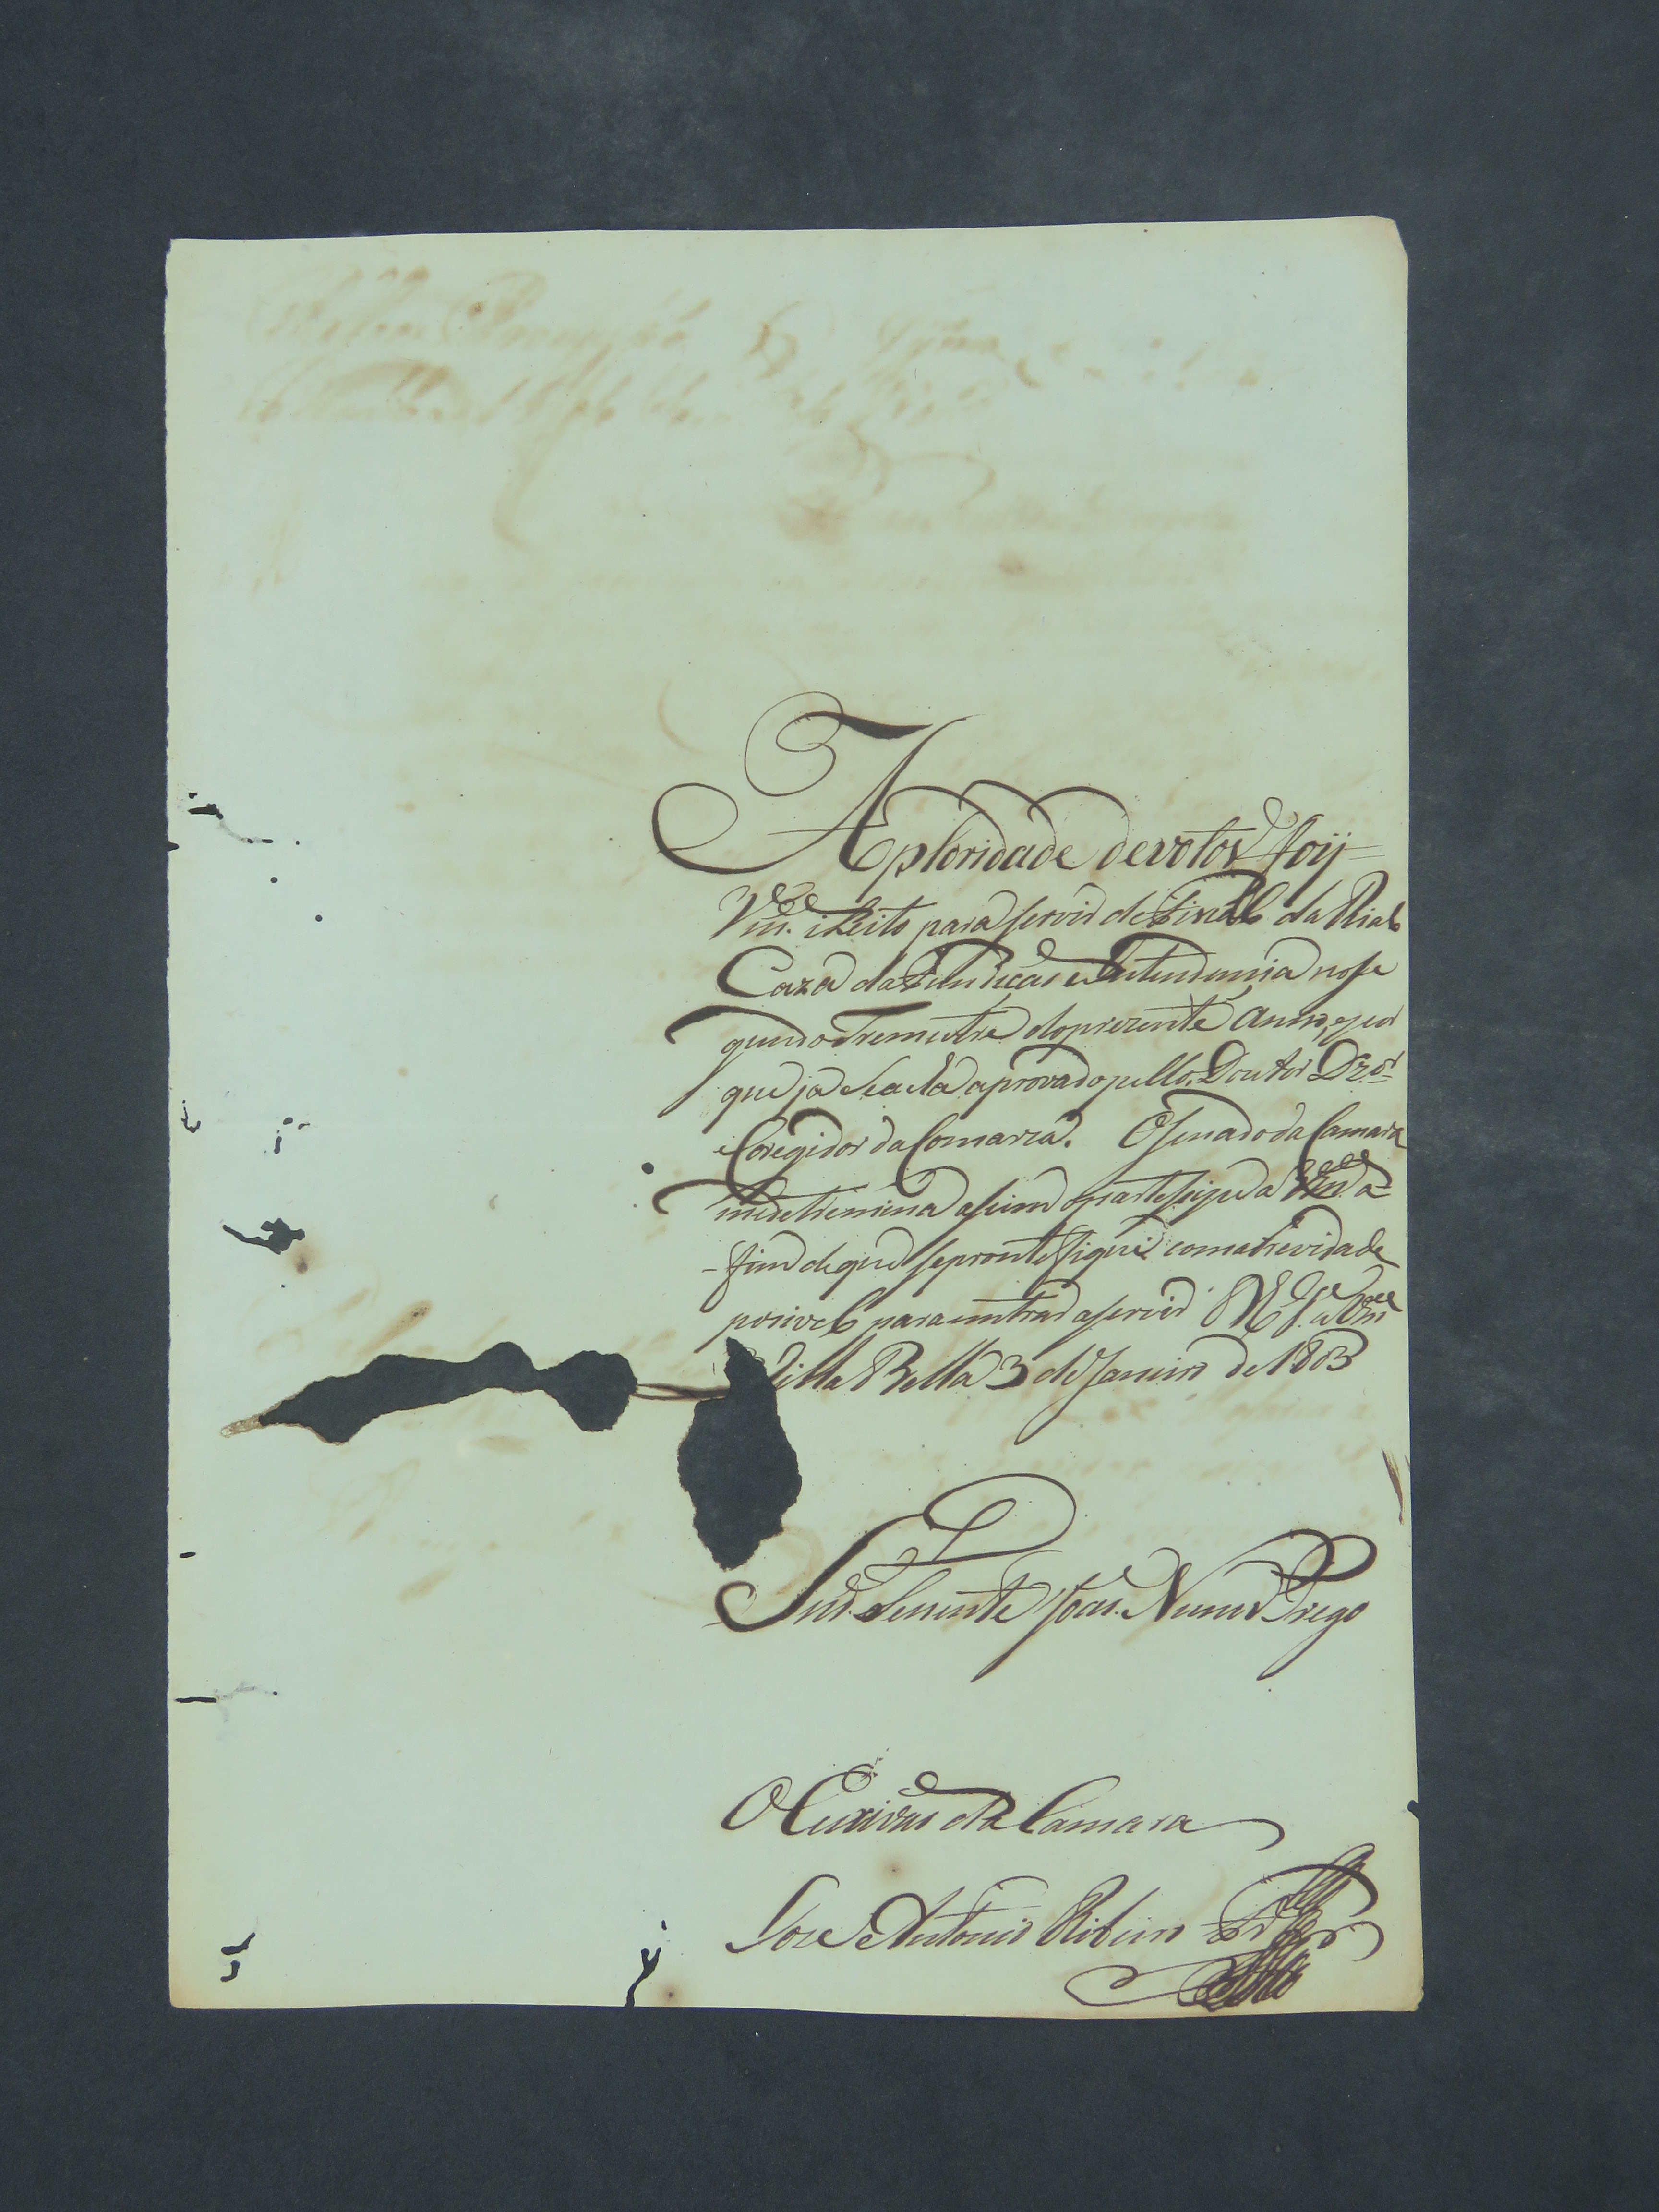 Aploridade devotos foy
Vm.ce ileito para servir de Fiscal da Rial
Caza da Fundição e Intendencia no se
gundo Tremestre do prezente anno, e por
que já se acha aprovado pello Doutor Dz.or
Coregidor da Comarca. O Senado da Camara
me detremina asim o partesipe a Vm.ce a
fim de que se prontefique com a brevidade
posivel para entrar a servir D. G.e a Vm.ce
Villa Bella 3 de Janeiro de 1803
Snr. Tenente João Nunes Prego
O Escrivão da Camara
Joze Antonio Ribeiro